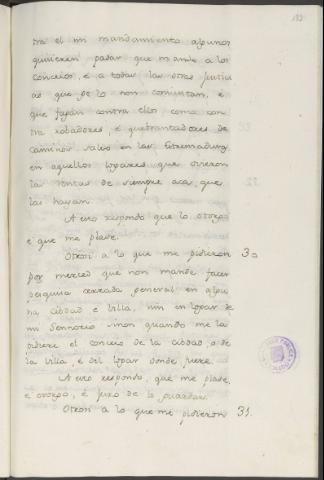 tra el mi mandamiento algunos
quisieren pasar que mande a los
concejos, e a todas las otras justici
as que ge lo non consientan, e
que fagan contra ellos como con
tra robadores, e quebrantadores de
caminos salvo en las Estremaduras
en aquellos logares que ovieron
las rentas de siempre aca que
las hayan.
A esto respondo que lo otorgo
e que me place.
Otrosi a lo que me pidieron 30
por merced que non mande facer
pesquisa cerrada general en algu
na cibdad e villa, nin en logar de
mi Sennorio sinon quando me la
pidiere el concejo de la cibdad, o de
la villa, e del logar donde fuere.
A esto respondo, que me place,
e otorgo, e juro de lo guardar.
Otrosi a lo que me pidieron 31.